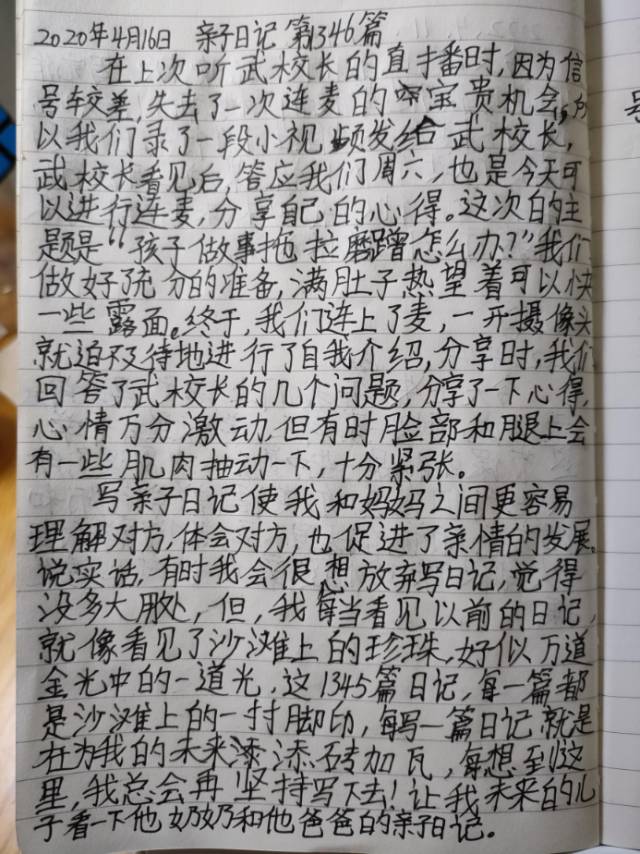 2020年4月16日 亲子日记 第1346篇
在上次听武校长的直播时,因为信
号较差,失去了一次连麦的宝贵机会,所
以我们录了一段小视频发给武校长,
武校长看见后,答应我们周六,也是今天可
以进行连麦,分享自己的心得。这次的主
题是“孩子做事拖拉磨蹭怎么办?”我们
做好了充分的准备,满肚子热望着可以快
一些露面。终于,我们连上了麦,一开摄像头
就迫不及待地进行了自我介绍,分享时,我们
回答了武校长的几个问题,分享了一下心得,
心情万分激动,但有时脸部和腿上会
有一些肌肉抽动一下,十分紧张。
写亲子日记使我和妈妈之间更容易
理解对方,体会对方,也促进了亲情的发展。
说实话,有时我会很想放弃写日记,觉得
没多大用处,但,我每当看见以前的日记,
就像看见了沙滩上的珍珠,好似万道
金光中的一道光,这1345篇日记,每一篇都
是沙滩上的一对脚印,每写一篇日记就是
在为我的未来添添砖加瓦,每想到这
里,我总会再坚持写下去!让我未来的儿
子看一下他奶奶和他爸爸的亲子日记。
号